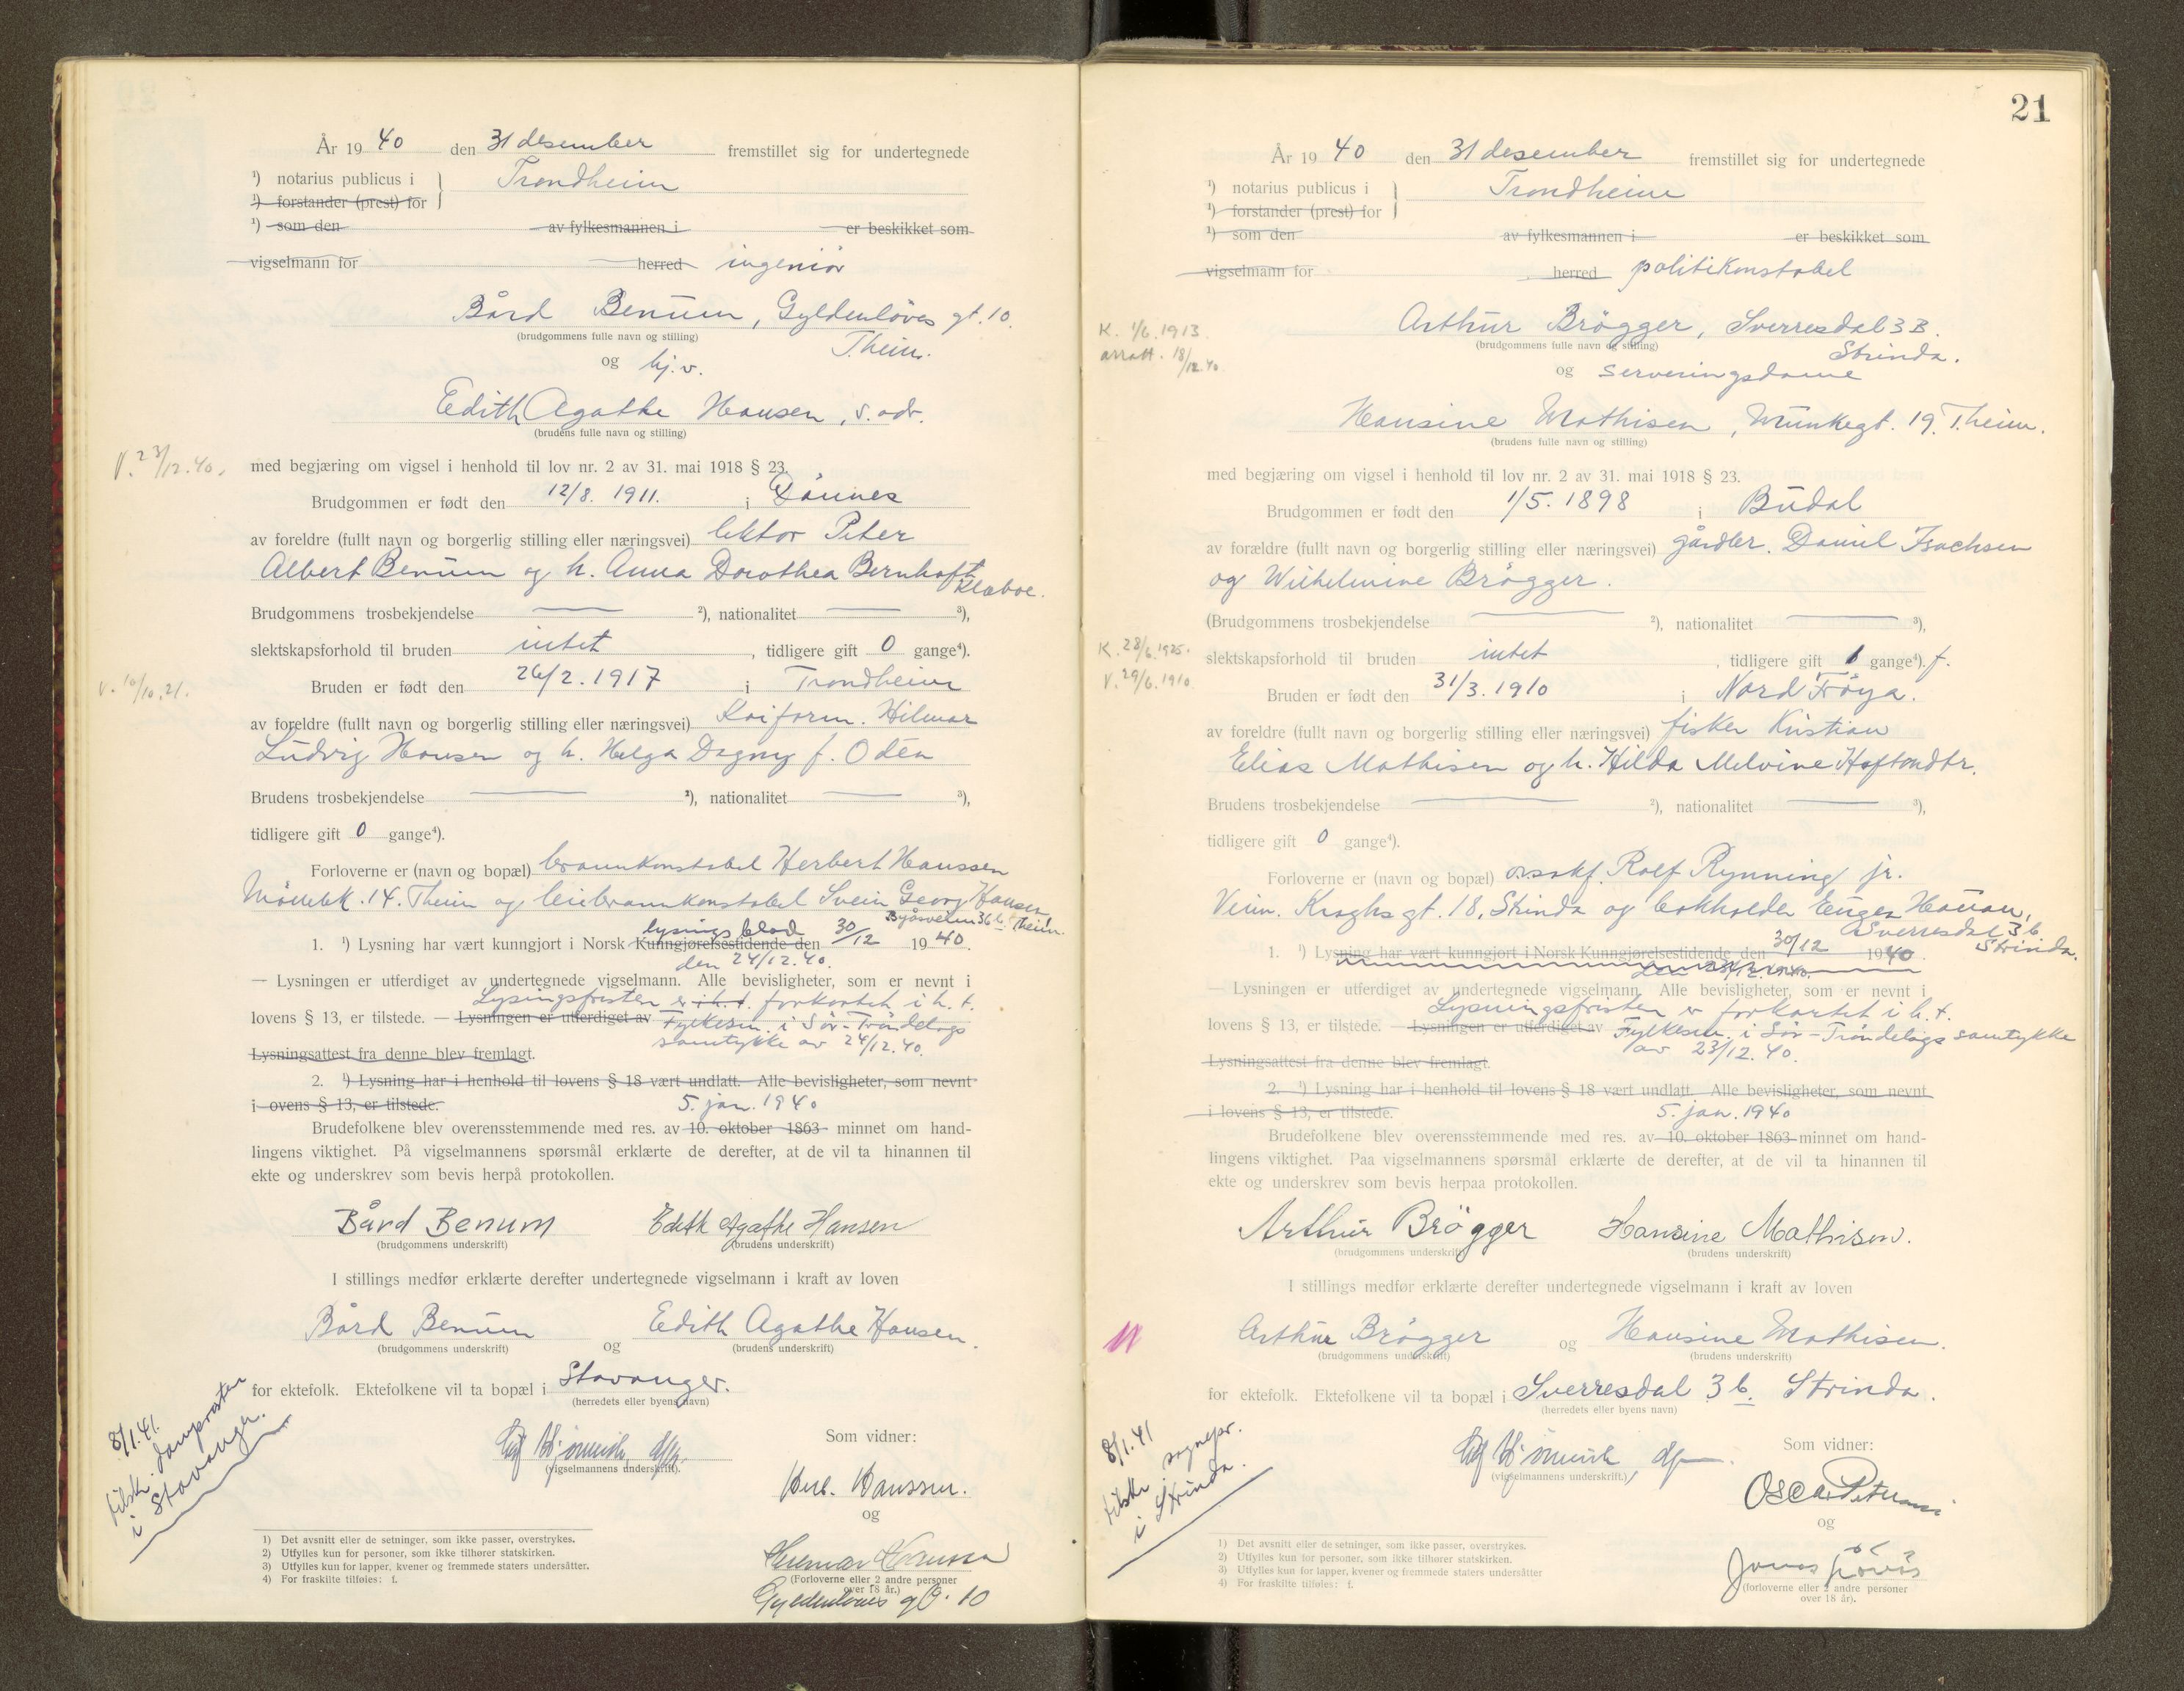 År 1940 den 31 desember fremstillet sig for undertegnede
¹) notarius publicus i Trondheim
¹) forstander (prest) for
¹) som den av fylkesmannen i er beskikket som
vigselmann for herred ingeniör
Bård Benum, Gyldenlöves gt. 10.
(brudgommens fulle navn og stilling)
T.heim.
og hj.v.
Edith Agathe Hansen, s. adr.
(brudens fulle navn og stilling)
V. 23/12.40.
med begjæring om vigsel i henhold til lov nr. 2 av 31. mai 1918 § 23.
Brudgommen er født den 12/8. 1911. i Dönnes
av foreldre (fullt navn og borgerlig stilling eller næringsvei) lektor Peter
Albert Benum og h. Anna Dorothea Bernhoft
Klæboe.
Brudgommens trosbekjendelse — ²), nationalitet — ³),
slektskapsforhold til bruden intet, tidligere gift 0 gange⁴).
v. 10/10.21.
Bruden er født den 26/2. 1917 i Trondheim
av foreldre (fullt navn og borgerlig stilling eller næringsvei) Kaiform. Hilmar
Ludvig Hansen og h. Helga Dagny f. Odén
Brudens trosbekjendelse — ²), nationalitet — ³),
tidligere gift 0 gange⁴).
Forloverne er (navn og bopæl) brannkonstabel Herbert Hanssen
Möllebk. 14. Theim og leiebrannkonstabel Svein Georg Hansen
Byåsveien 36 b. Theim.
lysingsblad
1. ¹) Lysning har vært kunngjort i Norsk Kunngjørelsestidende den 30/12 1940.
den 24/12.40.
— Lysningen er utferdiget av undertegnede vigselmann. Alle bevisligheter, som er nevnt i
Lysingsfristen er i h.t. forkortet i h. t.
lovens § 13, er tilstede. — Lysningen er utferdiget av Fylkesm. i Sör-Tröndelags
samtykke av 24/12.40.
Lysningsattest fra denne blev fremlagt.
2. ¹) Lysning har i henhold til lovens § 18 vært undlatt. Alle bevisligheter, som nevnt
i ovens § 13, er tilstede.
5. jan. 1940
Brudefolkene blev overensstemmende med res. av 10. oktober 1863 minnet om hand-
lingens viktighet. På vigselmannens spørsmål erklærte de derefter, at de vil ta hinannen til
ekte og underskrev som bevis herpå protokollen.
Bård Benum Edith Agathe Hansen
(brudgommens underskrift) (brudens underskrift)
I stillings medfør erklærte derefter undertegnede vigselmann i kraft av loven
Bård Benum og Edith Agathe Hansen.
(brudgommens underskrift) (brudens underskrift)
for ektefolk. Ektefolkene vil ta bopæl i Stavanger.
(herredets eller byens navn)
8/1.41.
tilskr. domprosten
i Stavanger.
(vigselmannens underskrift).
Som vidner:
Herb. Hanssen.
og
Hilmar Hanssen
(Forloverne eller 2 andre personer
over 18 år.)
Gyldenlöves gt. 10
1) Det avsnitt eller de setninger, som ikke passer, overstrykes.
2) Utfylles kun for personer, som ikke tilhører statskirken.
3) Utfylles kun for lapper, kvener og fremmede staters undersåtter.
4) For fraskilte tilføies: f.
21
År 1940 den 31 desember fremstillet sig for undertegnede
¹) notarius publicus i Trondheim
¹) forstander (prest) for
¹) som den av fylkesmannen i er beskikket som
vigselmann for herred politikonstabel
K. 1/6.1913.
attest. 18/12.40
Arthur Brögger, Sverresdal 3 B.
(brudgommens fulle navn og stilling)
Strinda.
og serveringsdame
Hansine Mathisen, Munkegt. 19. T.heim.
(brudens fulle navn og stilling)
med begjæring om vigsel i henhold til lov nr. 2 av 31. mai 1918 § 23.
Brudgommen er født den 1/5. 1898 i Budal
av forældre (fullt navn og borgerlig stilling eller næringsvei) gårdbr. Daniel Isachsen
og Wilhelmine Brögger.
(Brudgommens trosbekjendelse — ²), nationalitet — ³),
K. 28/6.1925.
slektskapsforhold til bruden intet, tidligere gift 1 gange⁴). f.
V. 29/6.1910.
Bruden er født den 31/3. 1910 i Nord Fröya.
av foreldre (fullt navn og borgerlig stilling eller næringsvei) fisker Kristian
Elias Mathisen og h. Hilda Melvine Haftondtr.
Brudens trosbekjendelse — ²), nationalitet — ³),
tidligere gift 0 gange⁴).
Forloverne er (navn og bopæl) Rolf Rynning jr.
Veim. Kroghs gt. 18, Strinda og bokholder Eugen Hauan,
Sverresdal 3 b
Strinda.
1. ¹) Lysning har vært kunngjort i Norsk Kunngjørelsestidende den 30/12 1940.
— Lysningen er utferdiget av undertegnede vigselmann. Alle bevisligheter, som er nevnt i
Lysningsfristen er forkortet i h. t.
lovens § 13, er tilstede. — Lysningen er utferdiget av Fylkesm. i Sör-Tröndelags samtykke
av 23/12.40.
Lysningsattest fra denne blev fremlagt.
2. ¹) Lysning har i henhold til lovens § 18 vært undlatt. Alle bevisligheter, som nevnt
i lovens § 13, er tilstede.
5. jan. 1940
Brudefolkene blev overensstemmende med res. av 10. oktober 1863 minnet om hand-
lingens viktighet. Paa vigselmannens spørsmål erklærte de derefter, at de vil ta hinannen til
ekte og underskrev som bevis herpaa protokollen.
Arthur Brögger Hansine Mathisen.
(brudgommens underskrift) (brudens underskrift)
I stillings medfør erklærte derefter undertegnede vigselmann i kraft av loven
Arthur Brögger og Hansine Mathisen.
(brudgommens underskrift) (brudens underskrift)
for ektefolk. Ektefolkene vil ta bopæl i Sverresdal 3 b. Strinda.
(herredets eller byens navn)
8/1.41
tilskr. sognepr.
i Strinda.
(vigselmannens underskrift.)
Som vidner:
Oscar
og
Jonas
(forloverne eller 2 andre personer
over 18 år).
1) Det avsnitt eller de setninger, som ikke passer, overstrykes.
2) Utfylles kun for personer, som ikke tilhører statskirken.
3) Utfylles kun for lapper, kvener og fremmede staters undersåtter
4) For fraskilte tilføies: f.